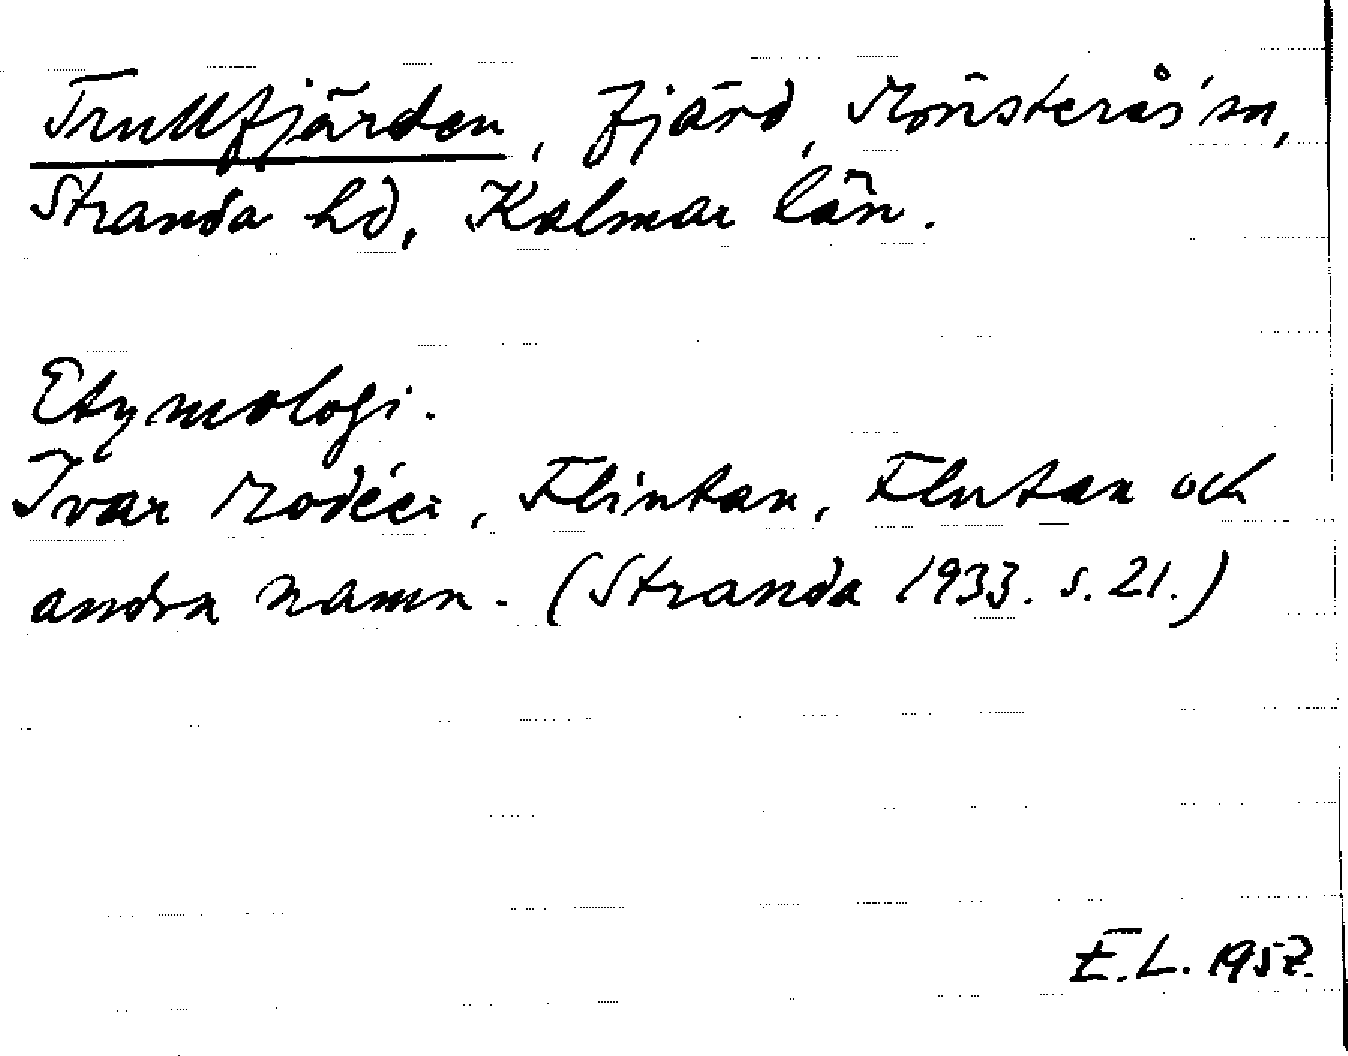 Trullfjärden, fjärd, Mönsterås sn,
Stranda hd, Kalmar län.
Etymologi.
Ivar Modéer, Flintan, Flutan och
andra namn. (Stranda 1933. s. 21.)
E.L. 1957.